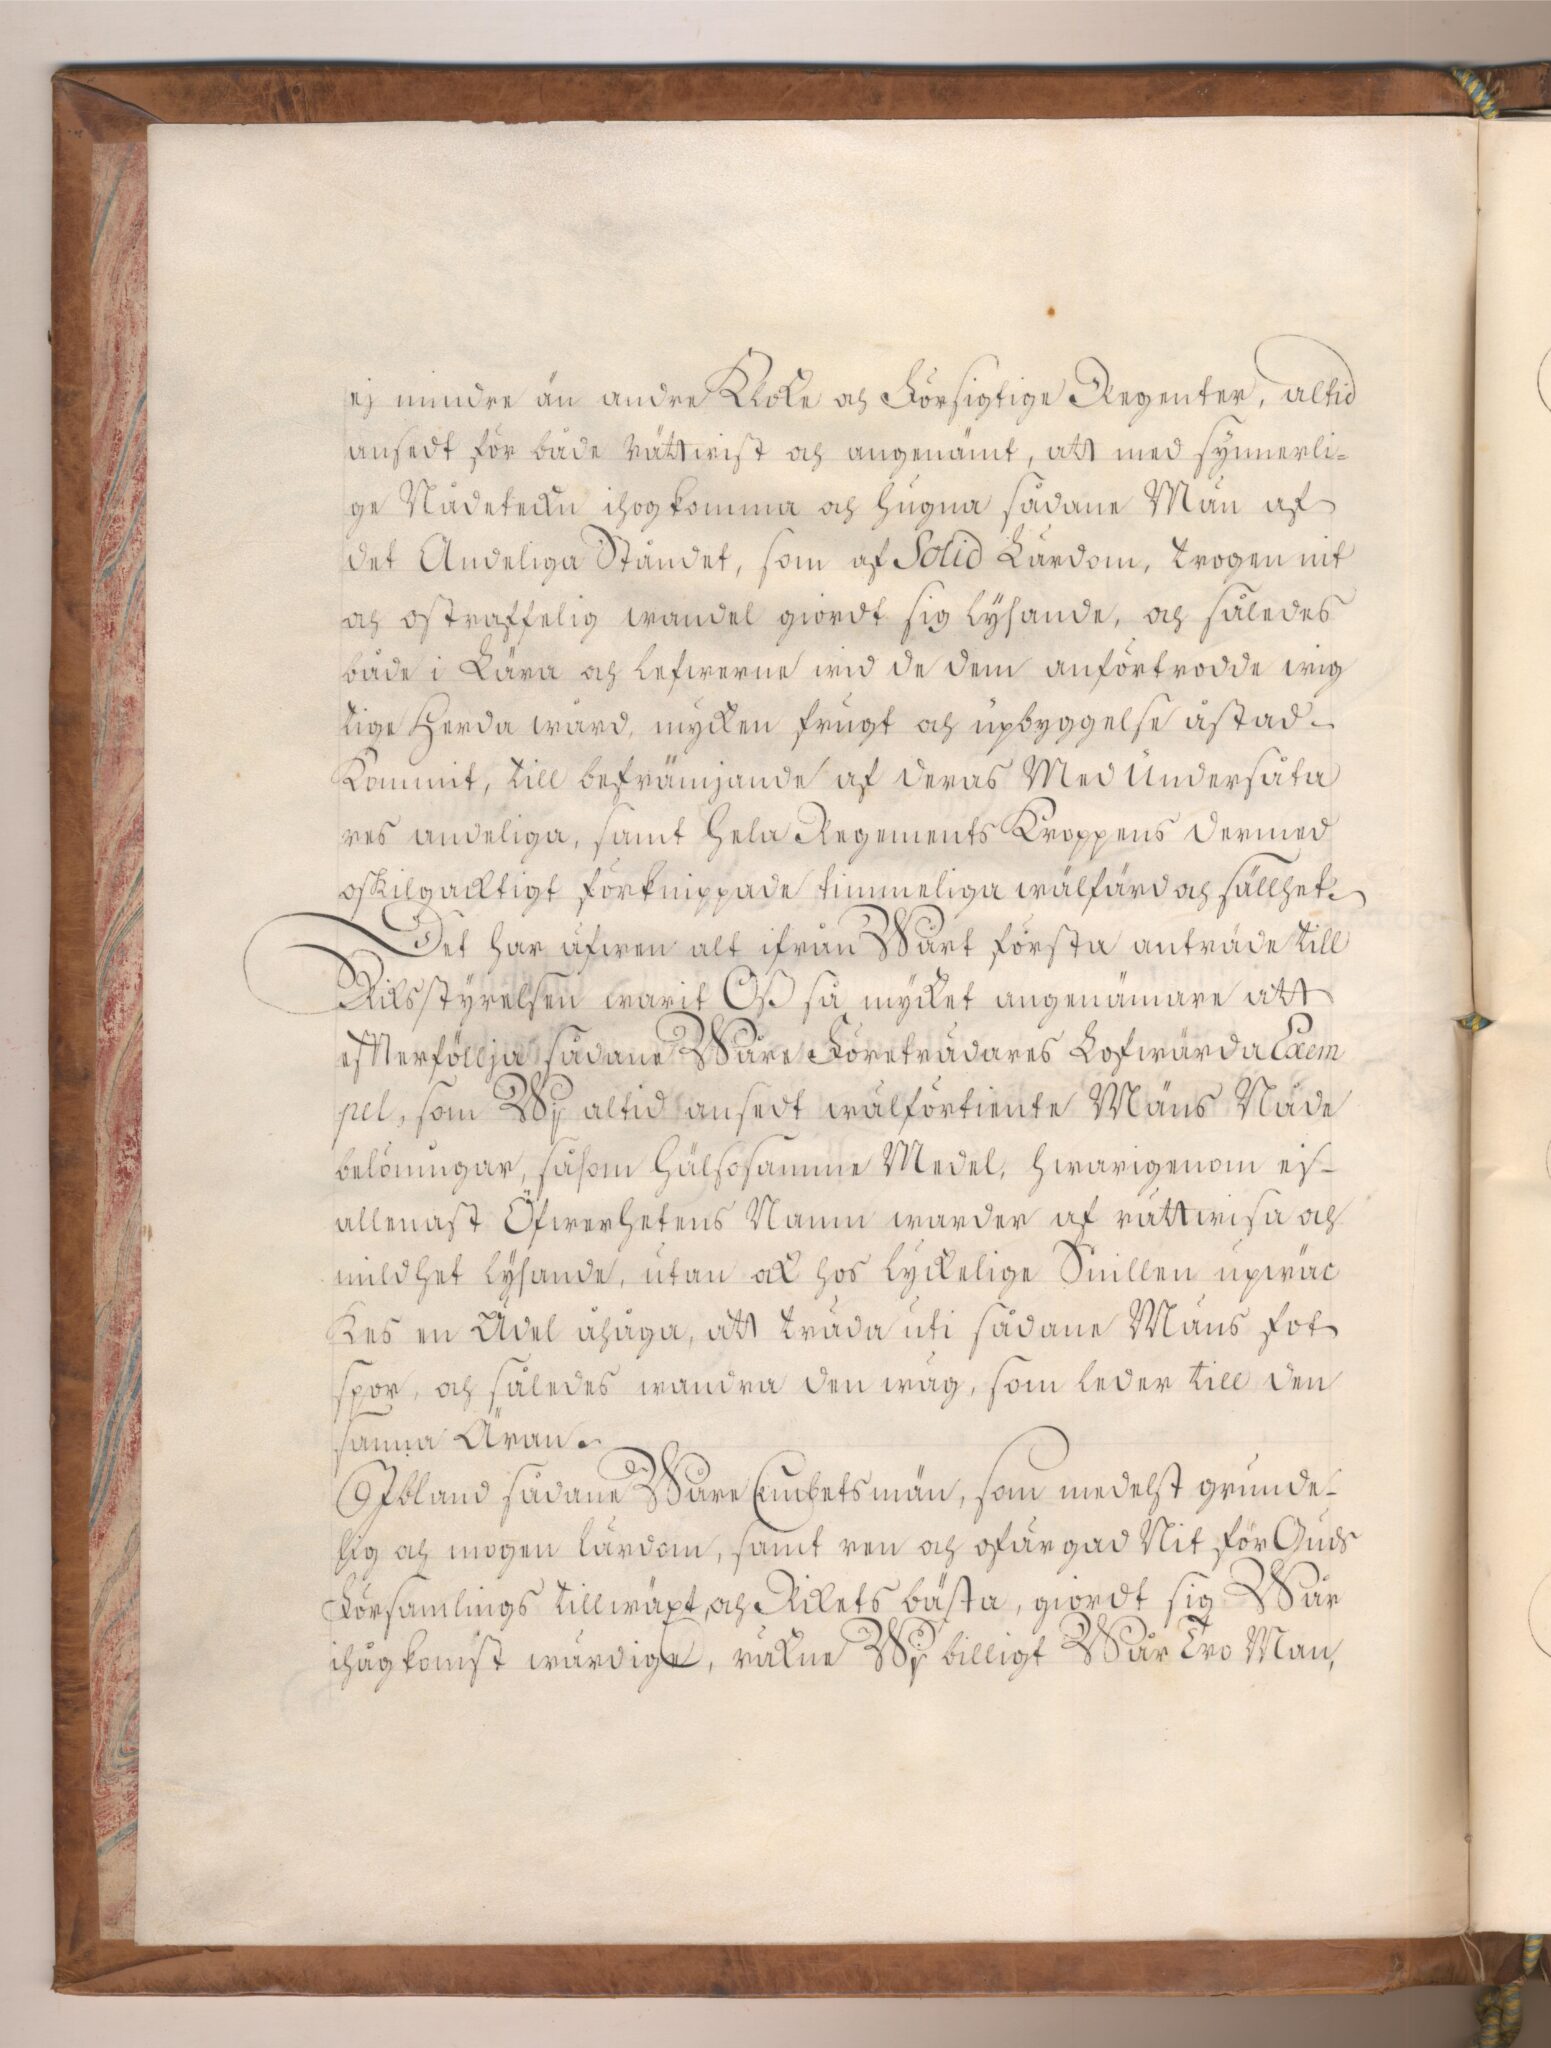 ej mindre än andre Kloke och Försigtige Regenter, altid
ansedt för både rättwist och angenämt, att med synnerli-
ge Nådetekn ihogkomma och hugna sådane Män af
det Andeliga Ståndet, som af Solid Lärdom, trogen nit
och ostraffelig wandel giordt sig lysande, och således
både i Lära och lefwerne wid de dem anförtrodde wig
tige Herda wård, mycken frugt och upbyggelse åstad-
Kommit, till befrämjande af deras Med Undersåta
res andeliga, samt hela Regements Kroppens dermed
oskilgacktigt förknippade timmeliga wälfärd och sällhet.
Det har äfwen alt ifrån Wårt första anträde till
Riksstyrelsen warit Oss så mycket angenämare att
efterföllja sådane Wåre Företrädares Lofwärda Exem
pel, som Wij altid ansedt wälförtiente Mäns Nåde
belöningar, såsom hälsosamme Medel, hwarigenom ej-
allenast Öfwerhetens Namn warder af rättwisa och
mildhet lysande, utan ock hos lyckelige Snillen upwäc
kes en Ädel åhåga, att träda uti sådane Mäns fot
spor, och således wandra den wäg, som leder till den
sanna Äran.
Ibland sådane Wåre Embetsmän, som medelst grunde-
lig och mogen lärdom, samt ren och ofärgad Nit för Guds
Församlings tillwäxt, och Rikets bästa, giordt sig Wår
ihågkomst wärdige, räkne Wij billigt Wår Tro Man,